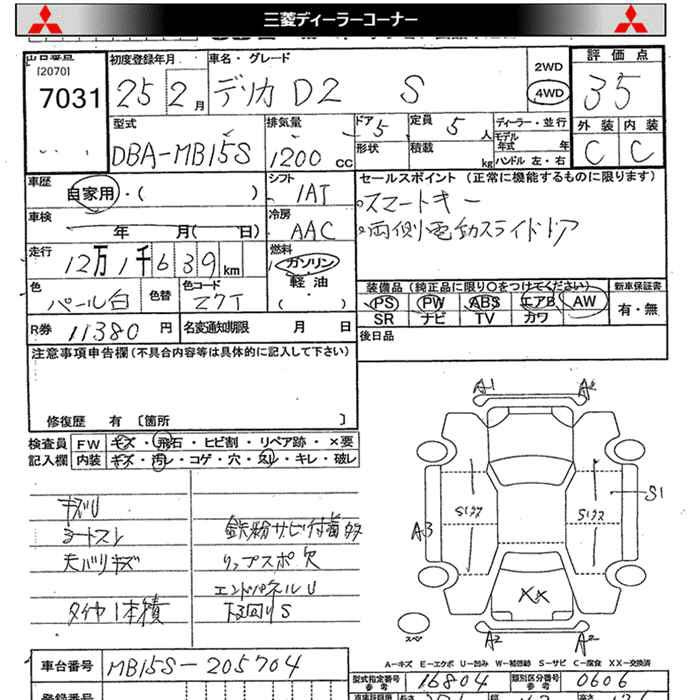 三菱ディーラーコーナー
出品番号
[2070]
7031
初度登録年月
25 2月
車名・グレード
デリカD2 S
2WD
4WD
評価点
35
外装 内装
C C
型式
DBA-MB15S
排気量
1200 cc
ドア 5
形状
定員 5 人
積載 kg
ディーラー・並行
モデル年式 年
ハンドル 左・右
車歴
自家用・( )
シフト
1AT
セールスポイント (正常に機能するものに限ります)
スマートキー
両側電動スライドドア
車検
年 月( 日)
冷房
AAC
走行
12万1千639km
燃料
ガソリン
軽油
・( )
色
パール白
色替
色コード
Z7T
装備品 (純正品に限り○をつけてください)
PS PW ABS エアB AW
SR ナビ TV カワ
新車保証書
有・無
R券 11380円
名変通知期限 月 日
後日品
注意事項申告欄 (不具合内容等は具体的に記入して下さい)
修復歴 有 〔箇所 〕
検査員記入欄
FW キズ・飛石・ヒビ割・リペア跡・×要
内装 キズ・汚レ・コゲ・穴・スレ・キレ・破レ
キズU
シートスレ
天バリキズ
タイヤ1本積
鉄粉サビ付着多
リップスポ欠
エンドパネルU
下廻りS
A1 A2
A3
S1
XX
A2 A2
スペ
A-キズ E-エクボ U-凹み W-補修跡 S-サビ C-腐食 XX-交換済
車台番号
MB15S-205704
型式指定番号
参考
16804
類別区分番号
参考
0606
登録番号